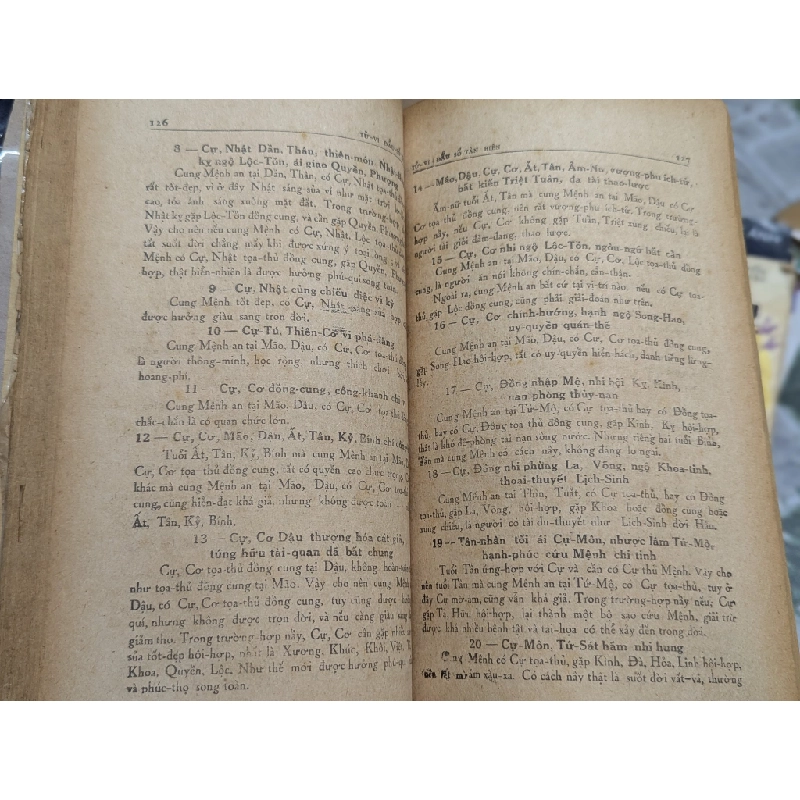 126
TỬ-VI ĐẨU
8 — Cự, Nhật Dần, Thân, thiên-môn Nhật
kỵ ngộ Lộc-Tồn, ái giao Quyền, Phượng
Cung Mệnh an tại Dần, Thân, có Cự, Nhật tọa-thủ
rất tốt-đẹp, vì ở đây Nhật sáng-sủa ví như mặt trời
cao, tỏa ánh sáng xuống mặt đất. Trong trường
Nhật kỵ gặp Lộc-Tồn đồng cung, và cần gặp Quyền Phượng
Vậy cho nên nếu cung Mệnh có Cự, Nhật, Lộc tọa-thủ
tất suốt đời chẳng mấy khi được xứng ý toại lòng
Mệnh có Cự, Nhật tọa-thủ đồng-cung, gặp Quyền,
hợp, thật hiển-nhiên là được hưởng phú-quí song toàn.
9 — Cự, Nhật củng chiếu diệc vi kỳ
Cung Mệnh tốt đẹp, có Cự, Nhật sáng-sủa
được hưởng giàu sang trọn đời.
10 — Cự-Tú, Thiên-Cơ vi phá-đãng
Cung Mệnh an tại Mão, Dậu, có Cự, Cơ tọa-thủ
là người thông-minh, học rộng, nhưng thích chơi
hoang-phí.
11 — Cự, Cơ đồng-cung, công-khanh chi vị
Cung Mệnh an tại Mão, Dậu, có Cự, Cơ tọa-thủ
chắc-chắn là có quan chức lớn.
12 — Cự, Cơ, Mão, Dần, Ất, Tân, Kỷ, Bính chí
Tuổi Ất, Tân, Kỷ, Bính mà cung Mệnh an tại Mão,
Cự, Cơ tọa thủ đồng cung, tất có quyền cao
khác mà cung Mệnh an tại Mão, Dậu, có Cự, Cơ tọa-thủ
cung, cũng hiển-đạt khá giả, nhưng không được toàn
Ất, Tân, Kỷ, Bính.
13 — Cự, Cơ Dậu thượng hóa cát giả,
túng hữu tài-quan dã bất chung
Cự, Cơ tọa-thủ đồng cung tại Dậu, không hoàn-toàn
như tọa-thủ đồng cung tại Mão. Vậy cho nên cung Mệnh
Dậu, có Cự, Cơ tọa-thủ đồng cung, tuy cũng được
quí, nhưng không được trọn đời, và nếu càng giàu sang
giảm thọ. Trong trường-hợp này, Cự, Cơ cần gặp nhiều
sủa tốt-đẹp hội-hợp, nhất là Xương, Khúc, Khôi, Việt,
Khoa, Quyền, Lộc. Như thế mới được hưởng phú-quí
và phúc-thọ song toàn.
TỬ-VI ĐẨU SỐ TÂN BIÊN
127
14 — Mão, Dậu, Cự, Cơ, Ất, Tân, Âm-Nữ, vượng-phu ích-tử,
bất kiến Triệt Tuần, đa tài thao-lược
Âm-nữ tuổi Ất, Tân mà cung Mệnh an tại Mão, Dậu có Cự
Cơ tọa thủ đồng cung, nên rất vượng-phu ích-tử. Trong trường-
hợp này, nếu Cự, Cơ không gặp Tuần, Triệt xung chiếu, lại là
người tài giỏi đảm-đang, thao lược.
15 — Cự, Cơ nhi ngộ Lộc-Tồn, ngôn-ngữ bất cẩn
Cung Mệnh an tại Mão, Dậu, có Cự, Cơ, Lộc tọa-thủ đồng
cung, là người ăn nói không chín-chắn, cẩn-thận.
Ngoài ra, cung Mệnh an bất cứ tại vị-trí nào nếu có Cự tọa-
thủ gặp Lộc đồng cung, cũng phải giải-đoán như trên.
16 — Cự, Cơ chính-hướng, hạnh ngộ Song-Hao,
uy-quyền quán-thế
Cung Mệnh an tại Mão, Dậu, có Cự, Cơ tọa-thủ đồng cung,
gặp Song-Hao hội-hợp, tất có uy-quyền hiển-hách, danh-tiếng lừng-
lẫy.
17 — Cự, Đồng nhập Mộ, nhi hội Kỵ, Kình,
nan phòng thủy-nạn
Cung Mệnh an tại Tứ-Mộ, có Cự tọa-thủ hay có Đồng tọa-
thủ, hay có Cự, Đồng tọa thủ đồng cung, gặp Kình, Kỵ hội-hợp,
thật là khó đề-phòng tai nạn sông nước. Nhưng riêng hai tuổi Đinh,
Tân mà cung Mệnh có cách này, không đáng lo ngại.
18 — Cự, Đồng nhi phùng La, Võng, ngộ Khoa-tinh,
thoại-thuyết Lịch-Sinh
Cung Mệnh an tại Thìn, Tuất, có Cự tọa-thủ, hay có Đồng
tọa-thủ, gặp La, Võng, hội-hợp, gặp Khoa hoặc đồng cung hoặc
xung chiếu, là người có tài du-thuyết như Lịch-Sinh đời Hán.
19 — Tân-nhân tối ái Cự-Môn, nhược lâm Tứ-Mộ,
hạnh-phúc cứu Mệnh chi tinh
Tuổi Tân ứng-hợp với Cự và cần có Cự thủ Mệnh. Vậy cho
nên tuổi Tân mà cung Mệnh an tại Tứ-Mộ, có Cự tọa-thủ, tuy ở
đây Cự mờ-ám, cũng vẫn khá giả. Trong trường-hợp này nếu, Cự
gặp Tả Hữu, hội-hợp, lại thành một bộ sao cứu Mệnh, giải trừ
được khá nhiều bệnh tật và tai-họa có thể xảy đến trong đời.
20 — Cự-Môn, Tứ-Sát hãm nhi hung
Cung Mệnh có Cự tọa-thủ, gặp Kình, Đà, Hỏa, Linh hội-hợp,
nên rất mờ-ám xấu-xa. Có cách này thật là suốt đời vất-vả, thường